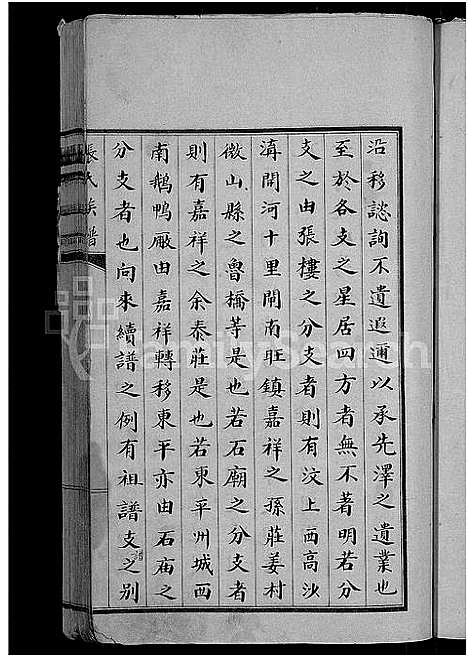 沿移諮詢不遺遐邇以承先澤之遺業也
至於各支之星居四方者無不著明若分
支之由張樓之分支者則有汶上西高沙
溝開河十里閘南旺鎮嘉祥之孫莊姜村
微山縣之魯橋等是也若石廟之分支者
則有嘉祥之余泰莊是也若東平州城西
南鵝鴨廠由嘉祥轉移東平亦由石庙之
分支者也向來續譜之例有祖譜支譜之別
張氏族譜
FamilySearch